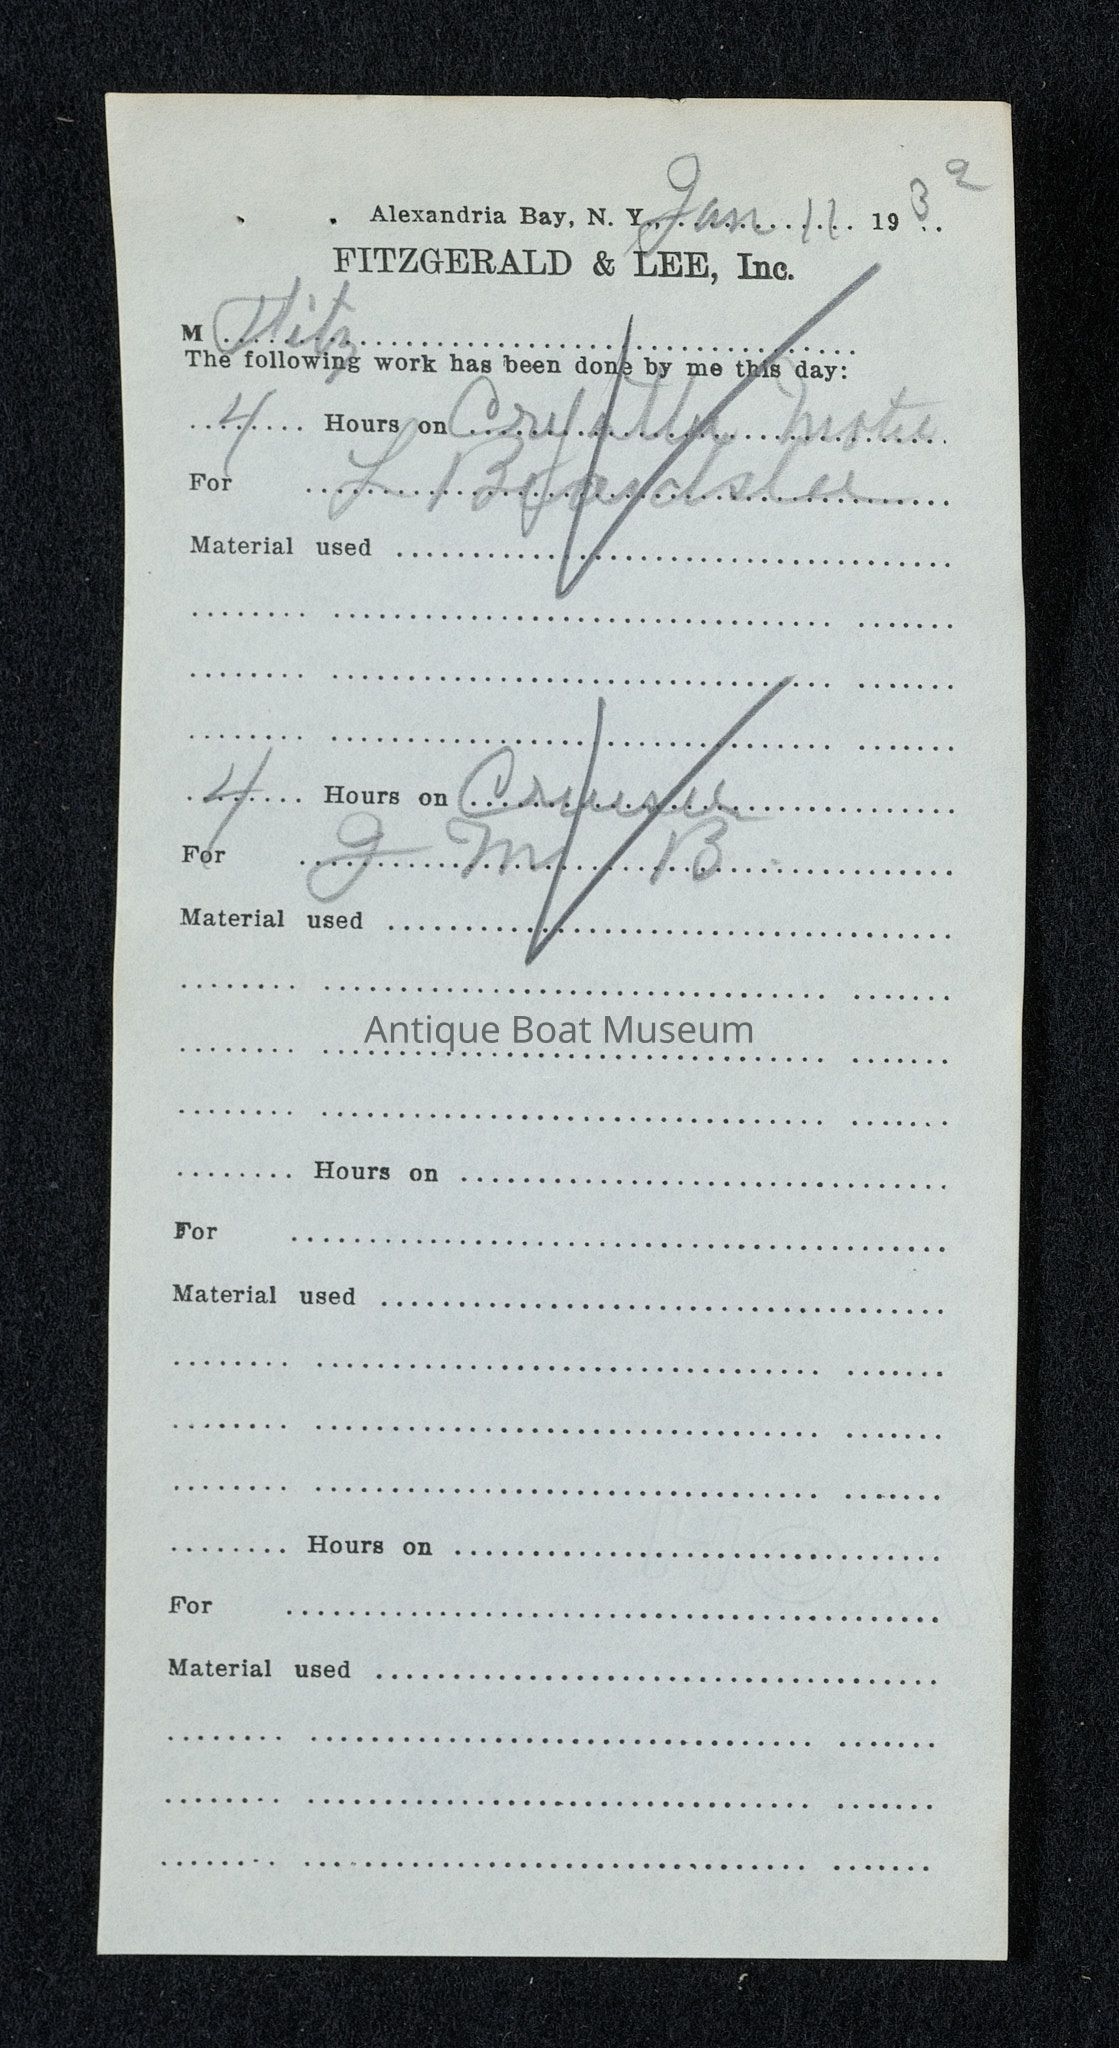 Alexandria Bay, N. Y., Jan 11 1932
FITZGERALD & LEE, Inc.
M Fitz
The following work has been done by me this day:
4 Hours on
For L Beardslee
Material used
4 Hours on Cruiser
For J M B
Material used
Antique Boat Museum
Hours on
For
Material used
Hours on
For
Material used